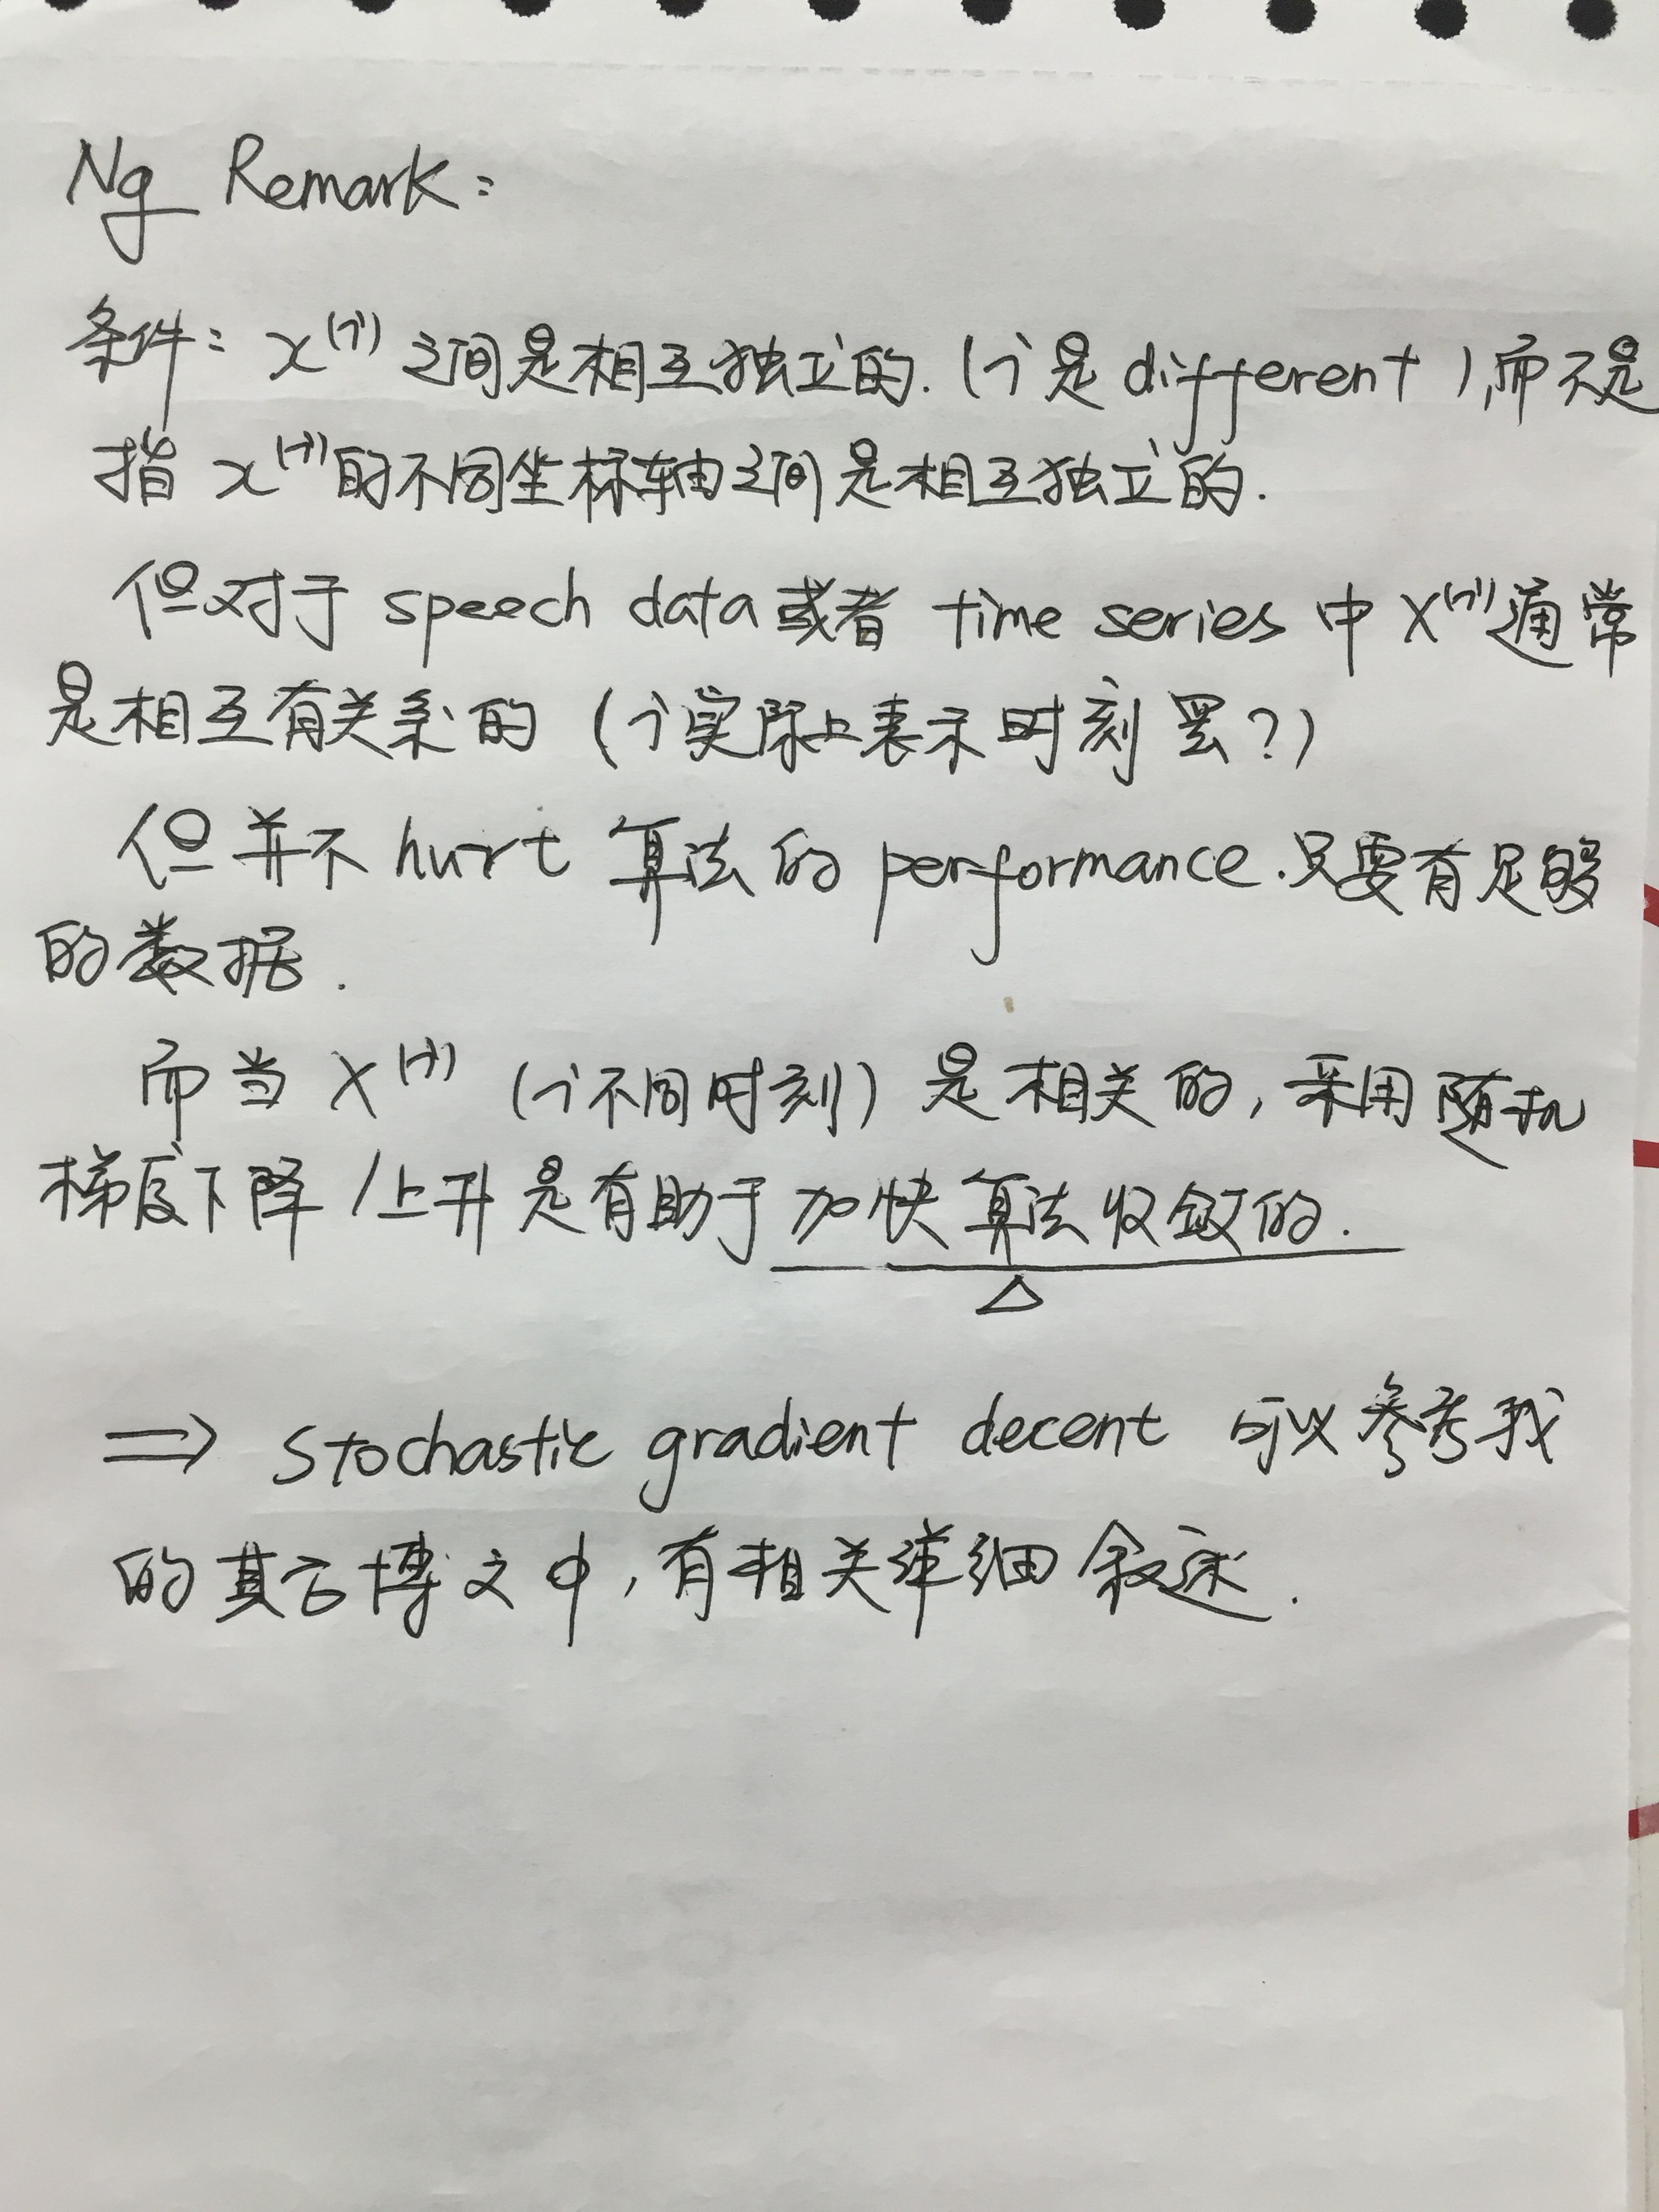 Ng Remark:
条件: x⁽ⁱ⁾ 之间是相互独立的. (i 是 different), 而不是
指 x⁽ⁱ⁾ 的不同坐标轴之间是相互独立的.
但对于 speech data 或者 time series 中 x⁽ⁱ⁾ 通常
是相互有关系的 (i 实际上表示时刻罢?)
但并不 hurt 算法的 performance. 只要有足够
的数据.
而当 x⁽ⁱ⁾ (i 不同时刻) 是相关的, 采用随机
梯度下降/上升是有助于加快算法收敛的.
△
⇒ stochastic gradient decent 可以参考我
的其它博文中, 有相关详细叙述.